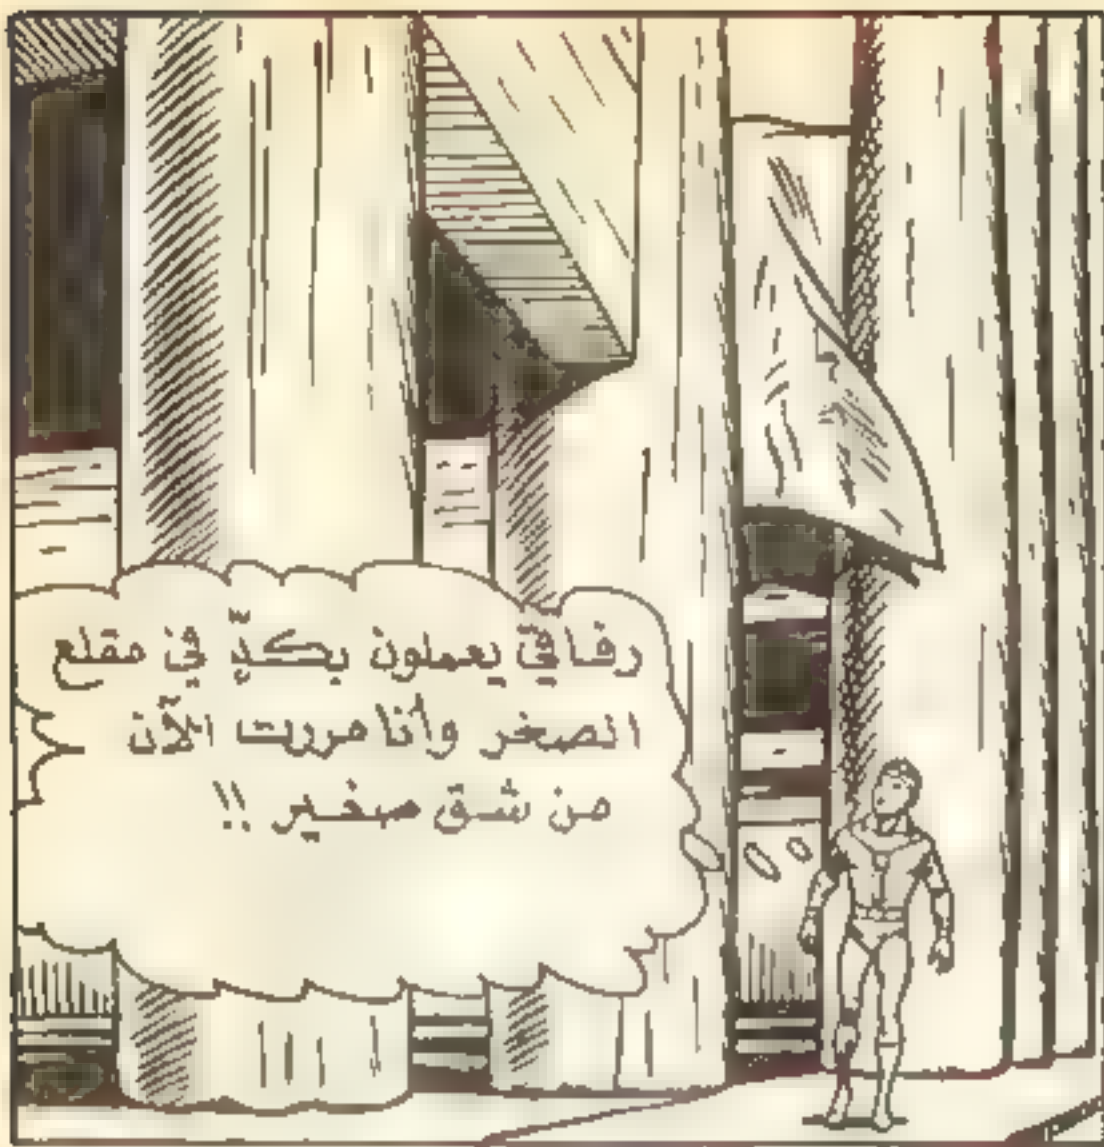 رفاقي يعملون بكدٍّ في مقلع
الصخر وأنا مررت الآن
من شق صغير !!